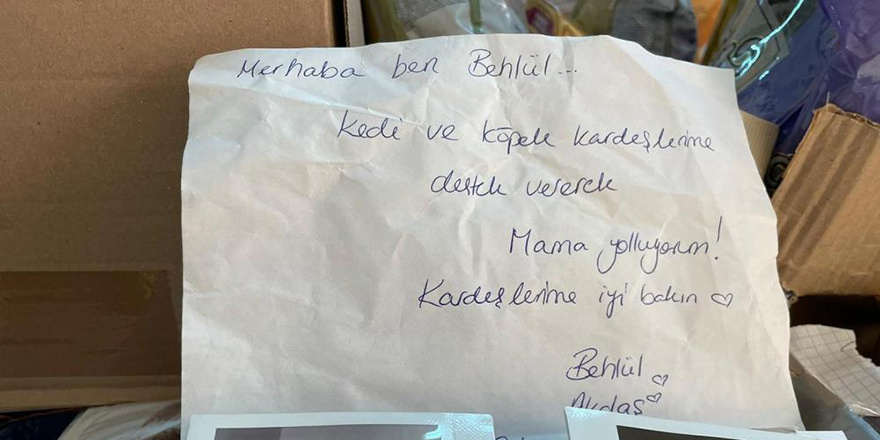 Merhaba ben Behlül...
Kedi ve köpek kardeşlerime
destek vererek
Mama yolluyorum!
Kardeşlerime iyi bakın ♡
Behlül ♡
Akdaş ♡